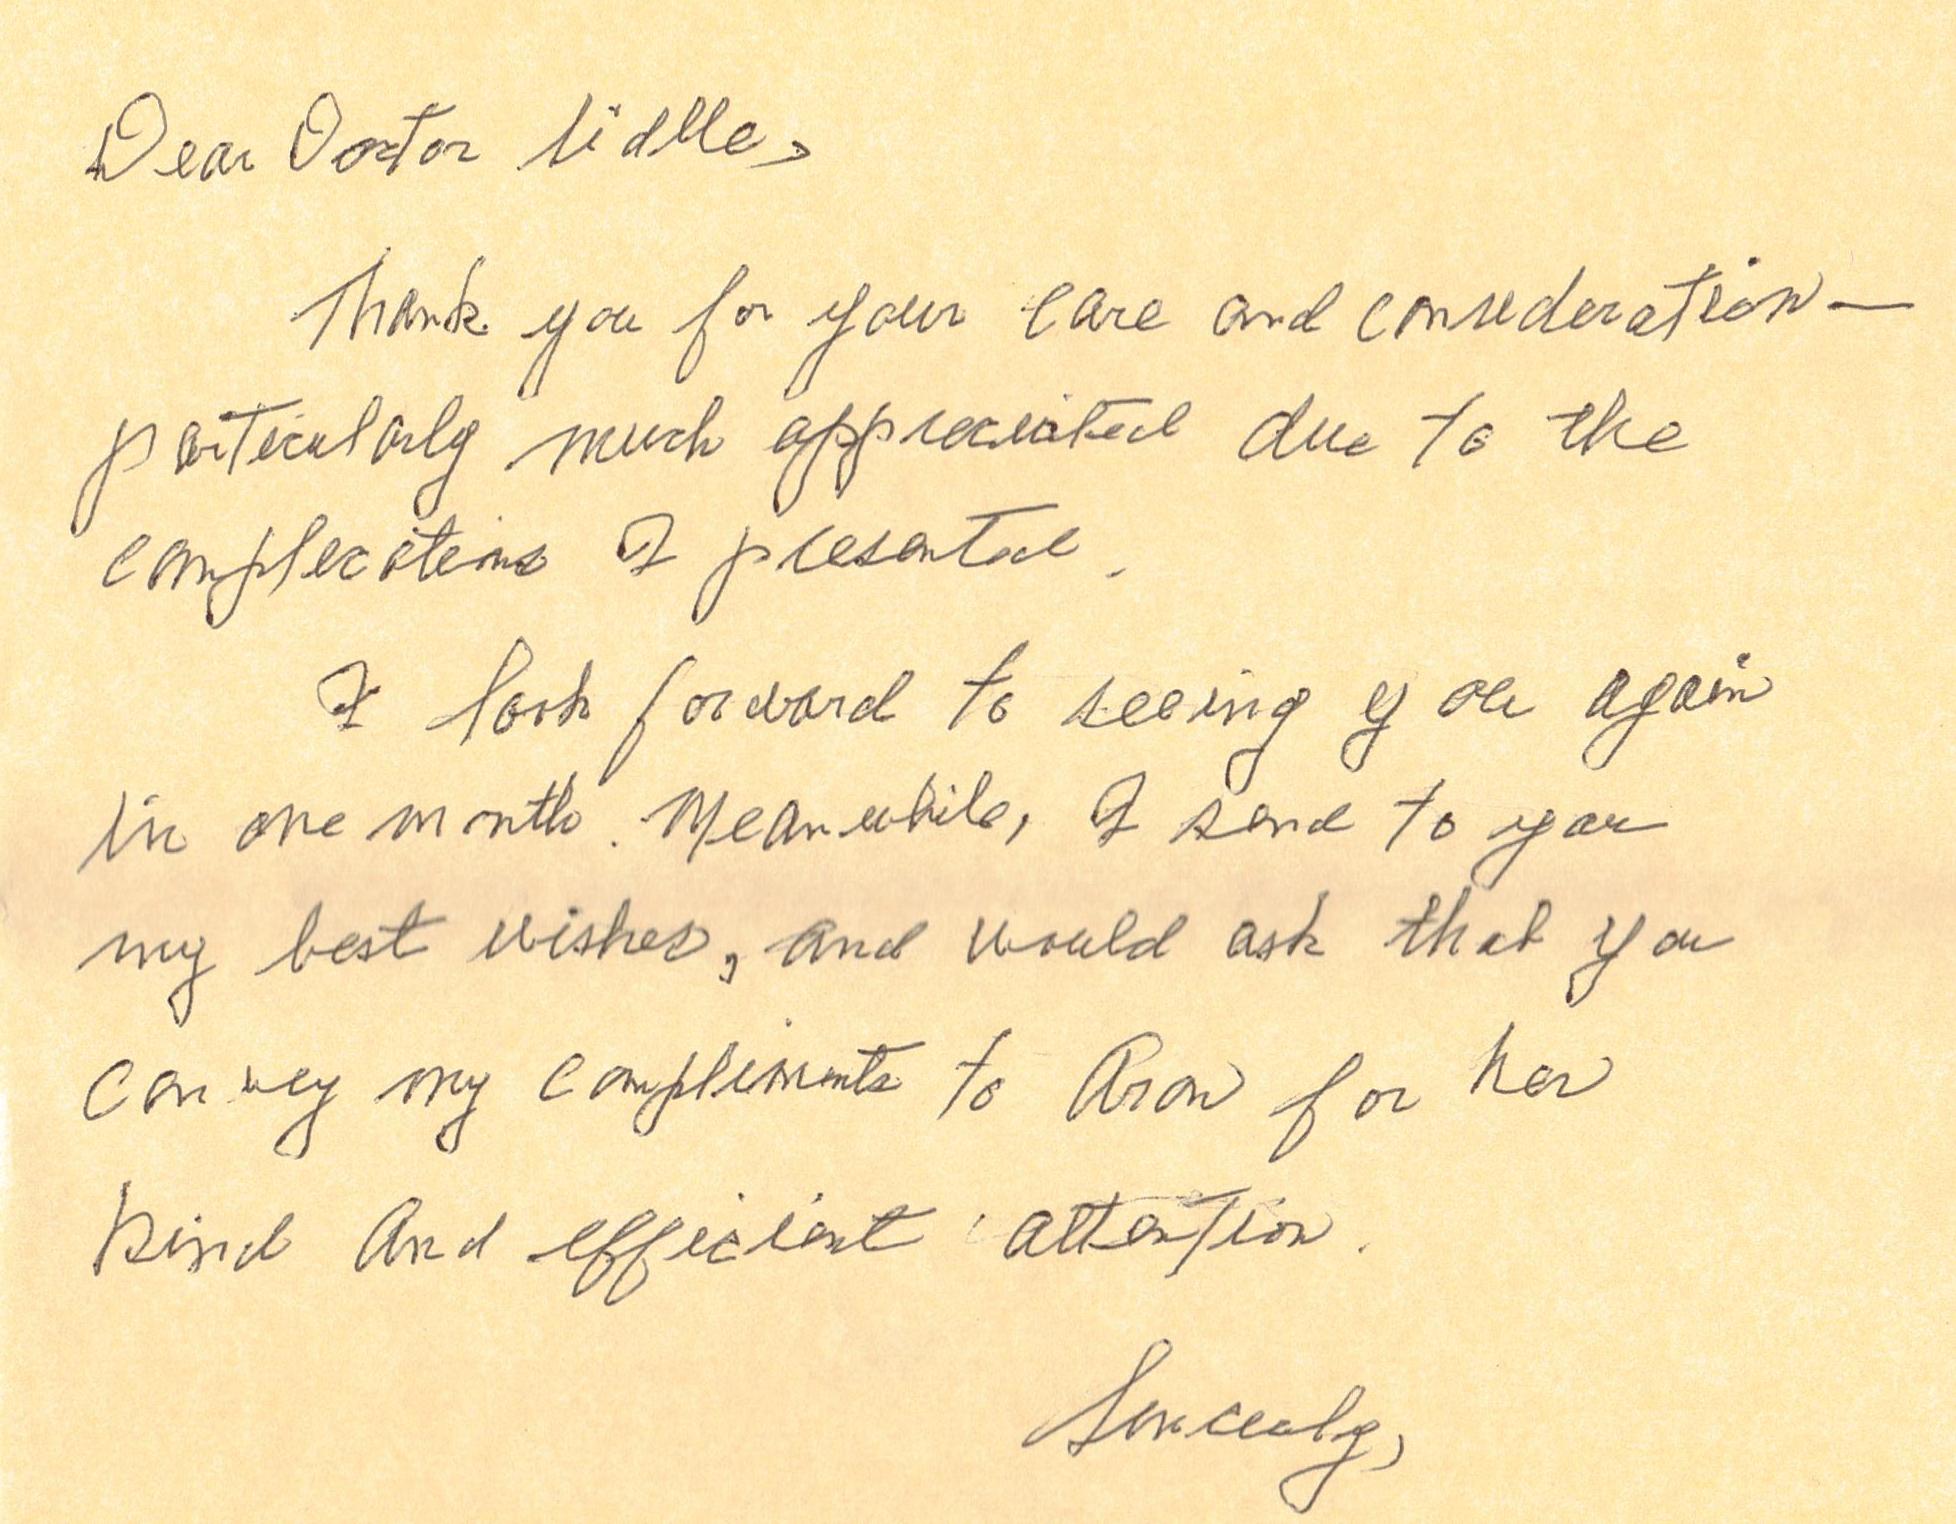 Dear Doctor Liddle,
Thank you for your care and consideration—
particularly much appreciated due to the
complications I presented.
I look forward to seeing you again
in one month. Meanwhile, I send to you
my best wishes, and would ask that you
convey my compliments to for her
kind and efficient attention.
Sincerely,